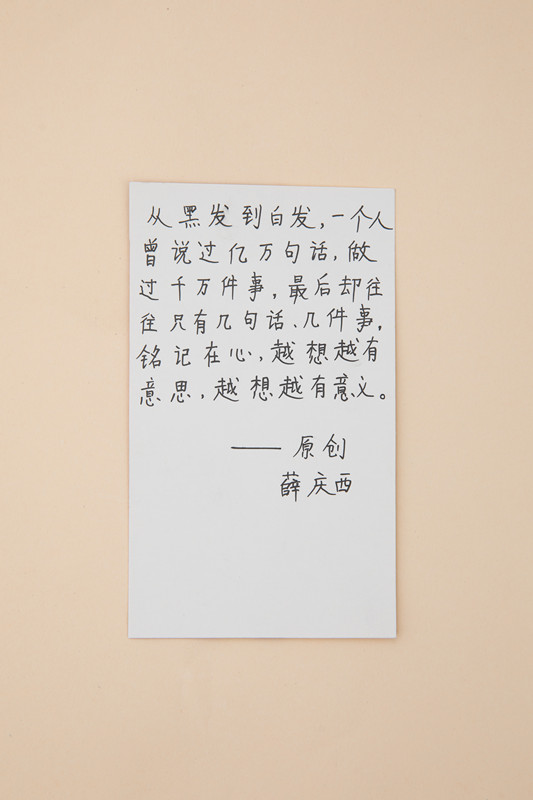 从黑发到白发,一个人
曾说过亿万句话,做
过千万件事,最后却往
往只有几句话、几件事,
铭记在心,越想越有
意思,越想越有意义。
——原创
薛庆西